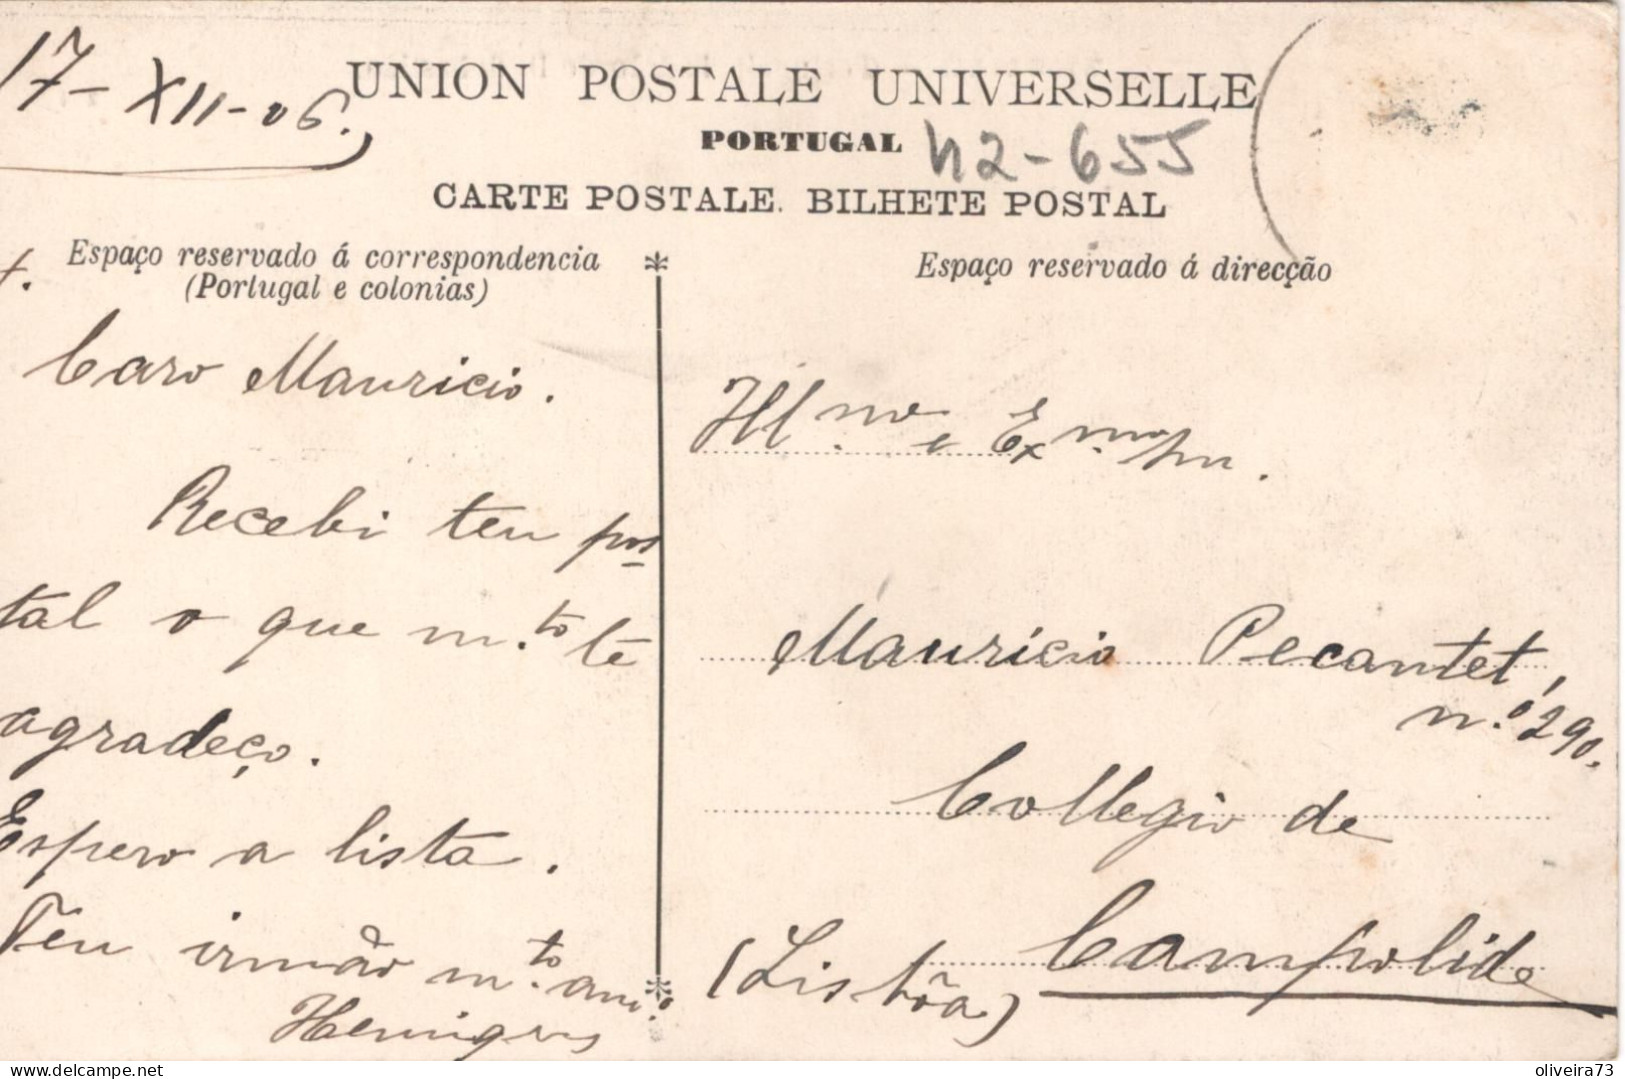 17-XII-06.
UNION POSTALE UNIVERSELLE
PORTUGAL
42-655
CARTE POSTALE. BILHETE POSTAL
Espaço reservado á correspondencia
(Portugal e colonias)
Espaço reservado á direcção
Caro Mauricio.
Recebi teu pos-
tal o que m.to te
agradeço.
Espero a lista.
Teu irmão m.to am.o
Ill.mo e Ex.mo Snr.
Mauricio Pecantet,
n.o 290.
Collegio de
Campolide
(Lisbôa)
delcampe.net
oliveira73